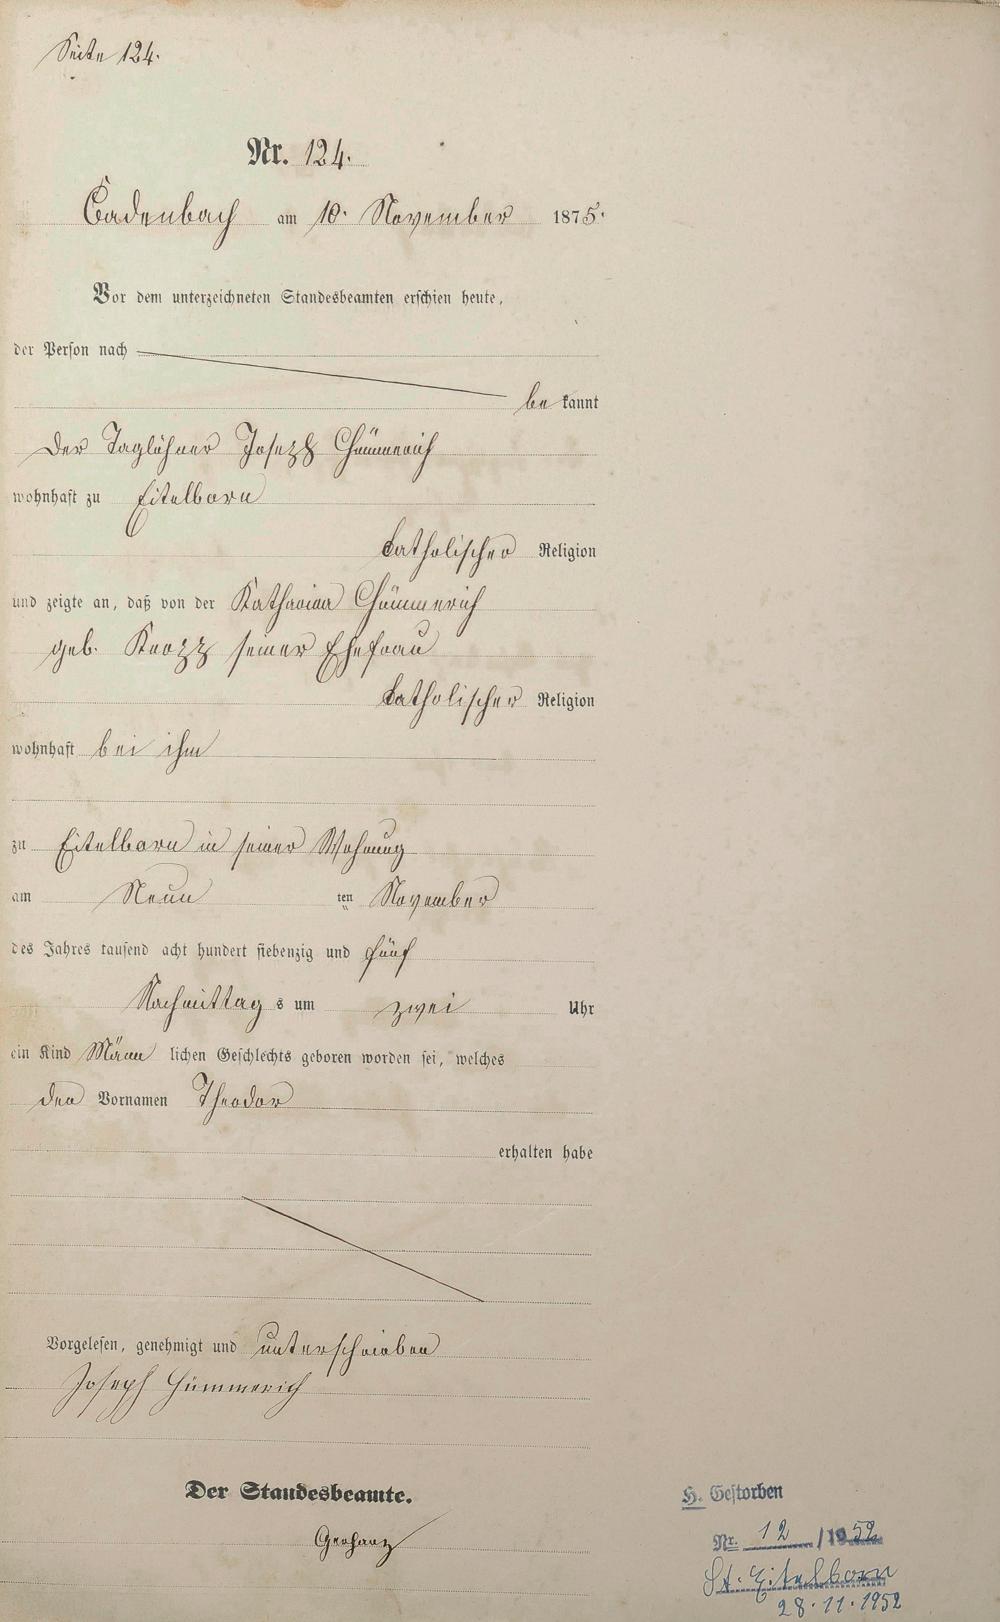 Seite 124.
Nr. 124.
Cadenbach am 10. November 1875.
Vor dem unterzeichneten Standesbeamten erschien heute,
der Person nach
be kannt
der Taglöhner Joseph Hümmerich
wohnhaft zu Eitelborn
katholischer Religion
und zeigte an, daß von der Katharina Hümmerich
geb. Knopp seiner Ehefrau
katholischer Religion
wohnhaft bei ihm
zu Eitelborn in seiner Wohnung
am Neun ten November
des Jahres tausend acht hundert siebenzig und fünf
Nachmittag s um zwei Uhr
ein Kind Männ lichen Geschlechts geboren worden sei, welches
den Vornamen Theodor
erhalten habe
Vorgelesen, genehmigt und unterschrieben
Joseph Hümmerich
Der Standesbeamte.
Gerharz
H. Gestorben
Nr. 12 / 1952
St. Eitelborn
28.11.1952